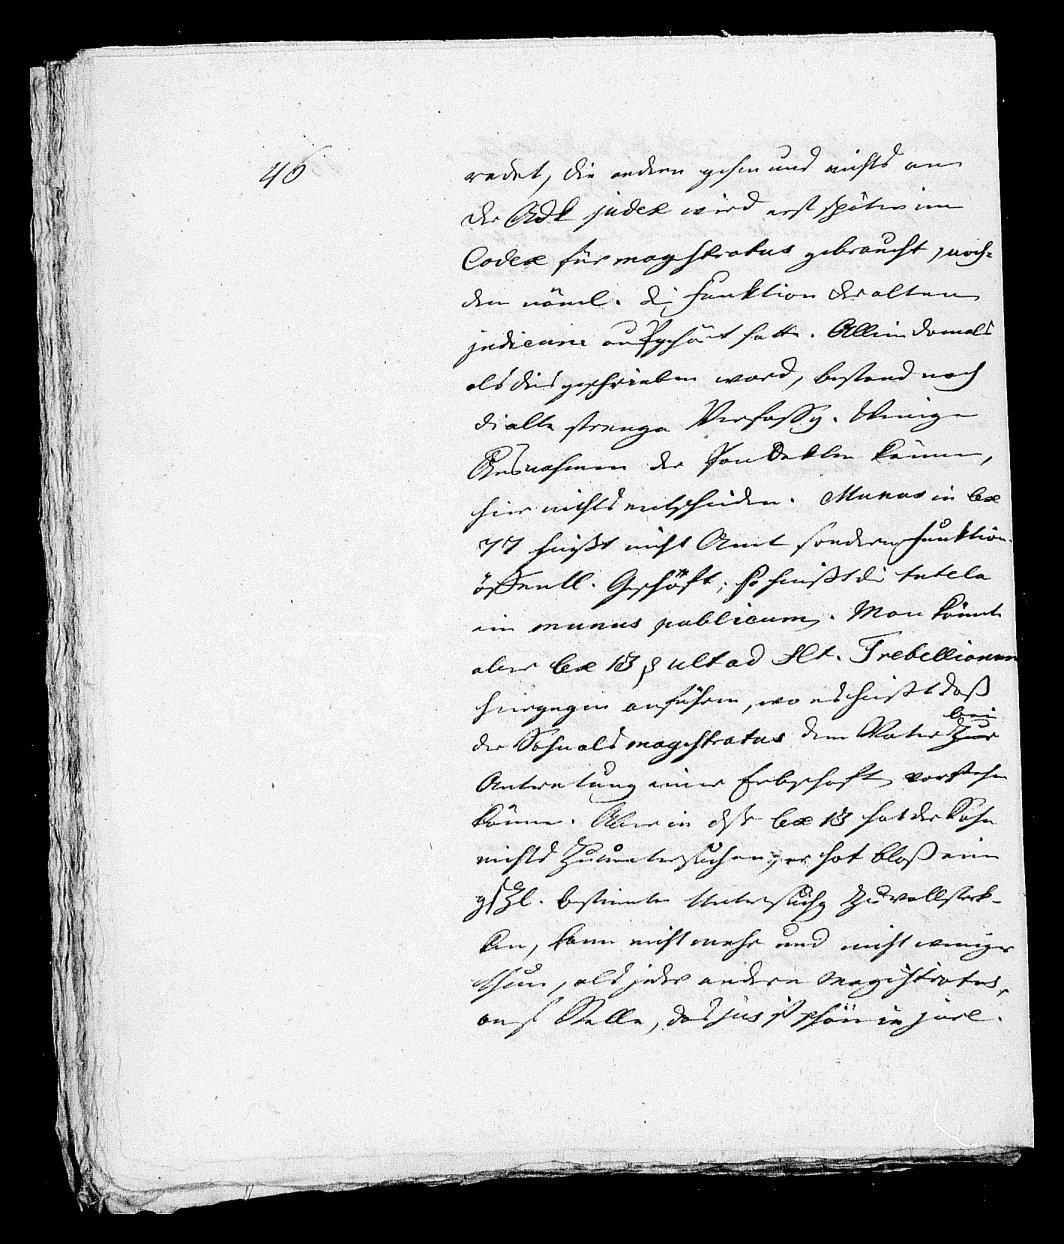 46
redet, die andern gehn uns nichts an
Der Ausdk judex wird erst später im
Codex für magistratus gebraucht, nach-
dem näml. die Funktion der alten
judicum aufgehört hatte. Allein damals
als dies geschrieben ward, bestand noch
die alte strenge Verfassg. Wenige
Ausnahmen der Pandekten können,
hier nichts entscheiden. Munus in lex
77 heißt nicht Amt sondern Funktion
öffentl. Geschäft; so heißt die tutela
ein munus publicum. Man könnte
aber lex 13 § ult ad Sct. Trebellianum
hiergegen anführen, wo es heißt daß
der Sohn als magistratus dem Vater zur
bei
Antretung einer Erbschaft vorstehn
könne. Aber in dsr lex 13 hat der Sohn
nichts zu untersuchen, er hat bloß eine
gsezl. bestimmte Untersuchg zu vollstrek-
ken, kann nicht mehr und nicht weniger
thun, als jeder andere Magistratus,
auf Stelle, das jus ist schon in jure.